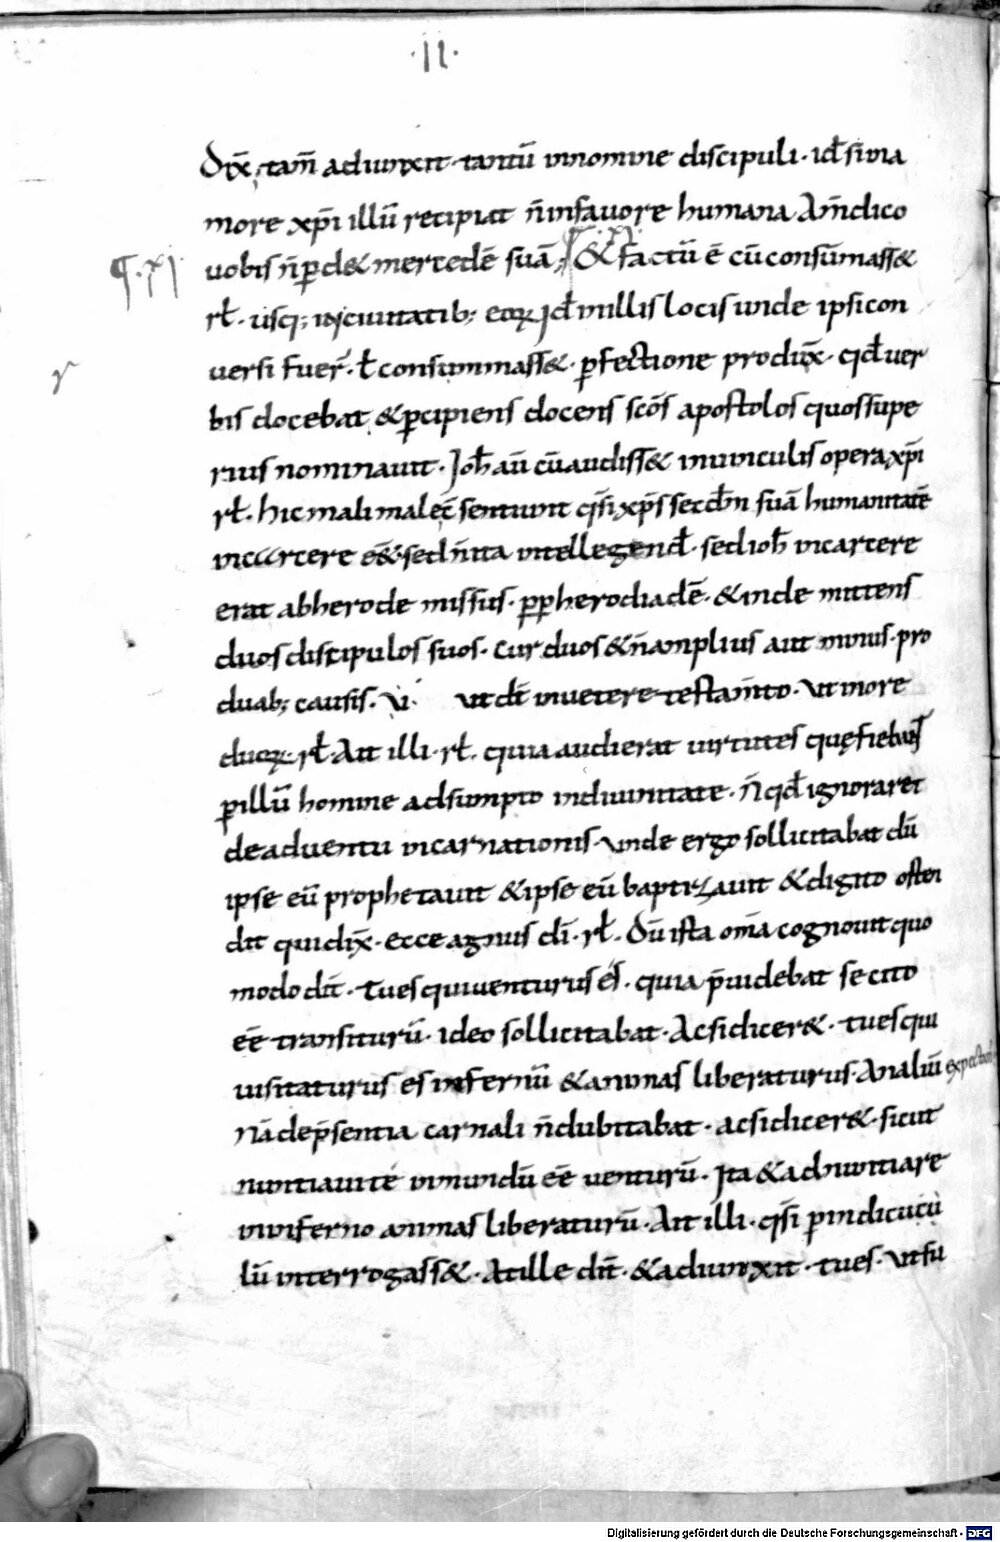 ·II·
Dix̄ tam̄ adiunxit· tantū innomine discipuli· id̄ siina
more xp̄i illū recipiat n̄ infauore humana Am̄dico
uobis n̄ ꝑd& mercedē suā ; ¶·XI· & factū ē cūconsūmass&
¶·XI
rł· usq; inciuitatib; eoꝝ Id̄ inillis locis unde ipsi con
uersi fuer̄· ł consummass&· ꝑfectione produx̄· qd̄ uer
r
bis docebat &ꝑcipiens docens scōs apostolos quos supe
rius nominauit· Ioh̄ aū cū audiss& inuinculis opera xp̄i
rł· hic mali malec̄ sentiunt qs̄i xp̄s secdm̄ suā humanitatē
incarcere eē& sed n̄ ita intellegend̄· sed ioh̄ incarcere
erat abherode missus· ꝓꝑ herodiadē· & inde mittens
duos discipulos suos· Cur duos & n̄ amplius aut minus· pro
duab; causis· Vi· ut dt̄ inuetere testam̄to· Vt inore
duoꝝ· rł· Ait illi· rł· quia audierat uirtutes quę fiebant
ꝑ illū homine adsumpto indiuinitate· n̄ qd̄ ignoraret
deaduentu incarnationis· unde ergo sollicitabat dū
ipse eū prophetauit & ipse eū baptizauit & digito osten
dit qui dix̄· ecce agnus di̅· rł· Dū ista om̄a cognouit quo
modo dit̄· tu es quiuenturus és· quia p̄uidebat se cito
eē transiturū· ideo sollicitabat· Acsi dicer&· tu es qui
uisitaturus es infernū & animas liberaturus· An aliū expectam
Nā de p̄sentia carnali n̄ dubitabat· acsi dicer&· sicut
nuntiaui té inmundū eē uenturū· Ita & adnuntiare
ininferno animas liberaturū· Ait illi· qs̄i ꝑ indicucu
lū interrogass&· At ille dit̄· & adiunxit· tu es· Vt su
Digitalisierung gefördert durch die Deutsche Forschungsgemeinschaft - DFG